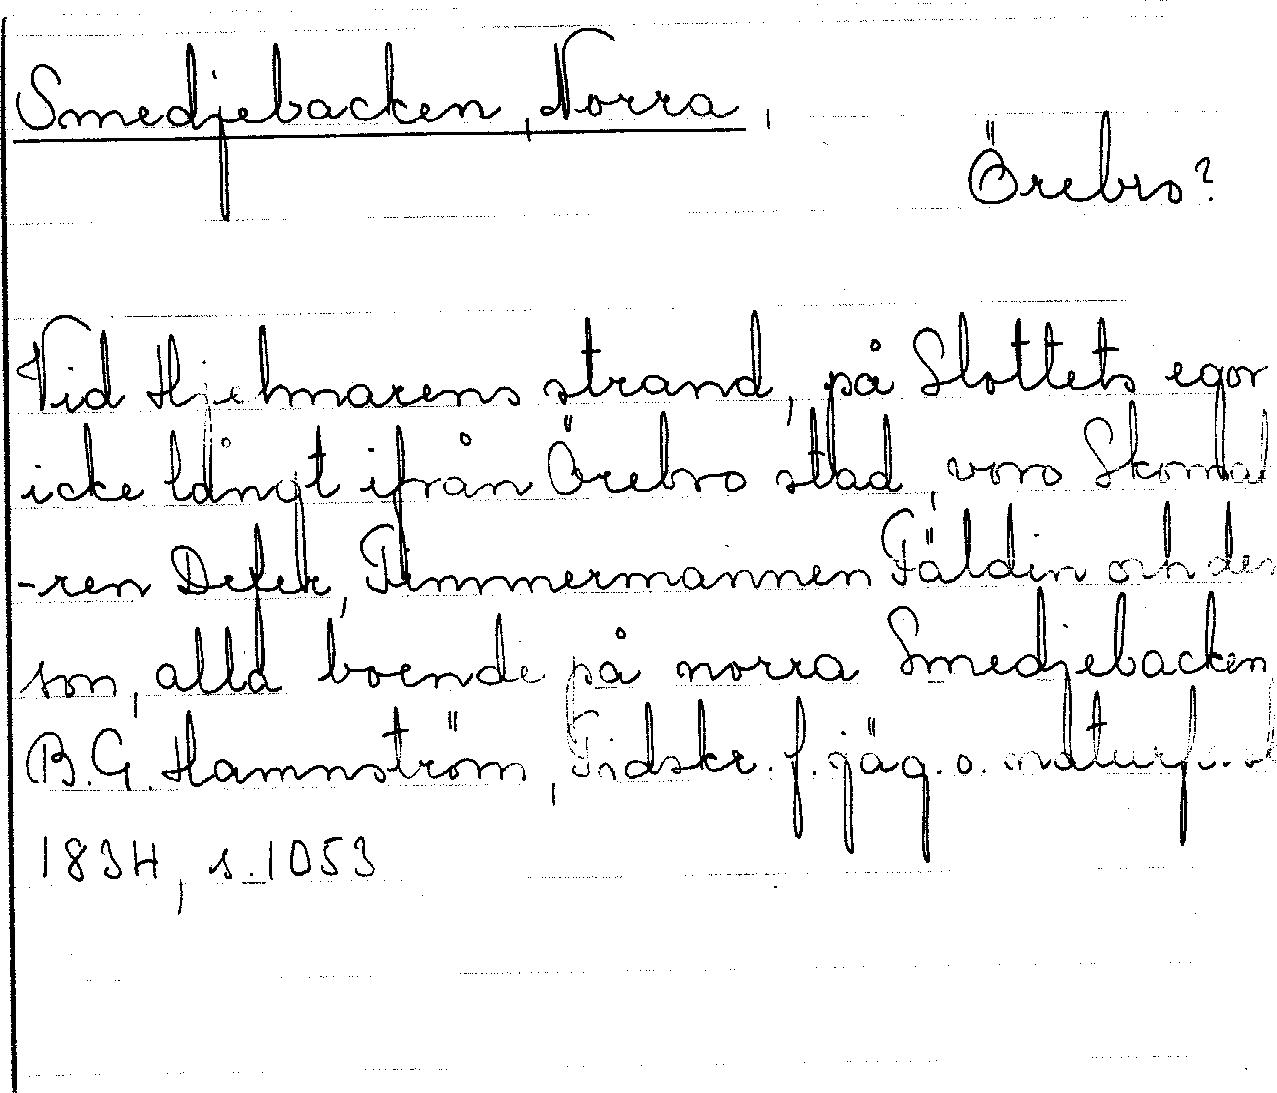 Smedjebacken, Norra,
Örebro?
Vid Hjelmarens strand, på Slottets egor
icke långt ifrån Örebro stad, voro Skoma
-ren Defer, Timmermannen Fäldin och
son, alla boende på norra Smedjebacken
B.G. Hammström, Tidskr. f. jäg. o. naturf.
1834, s. 1053